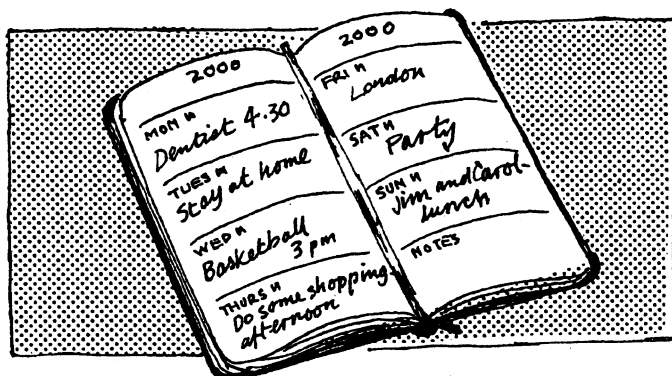 2000
MON
Dentist 4.30
TUES
Stay at home
WED
Basketball
3 pm
THURS
Do some shopping-
afternoon
2000
FRI
London
SAT
Party
SUN
Jim and Carol-
lunch
NOTES